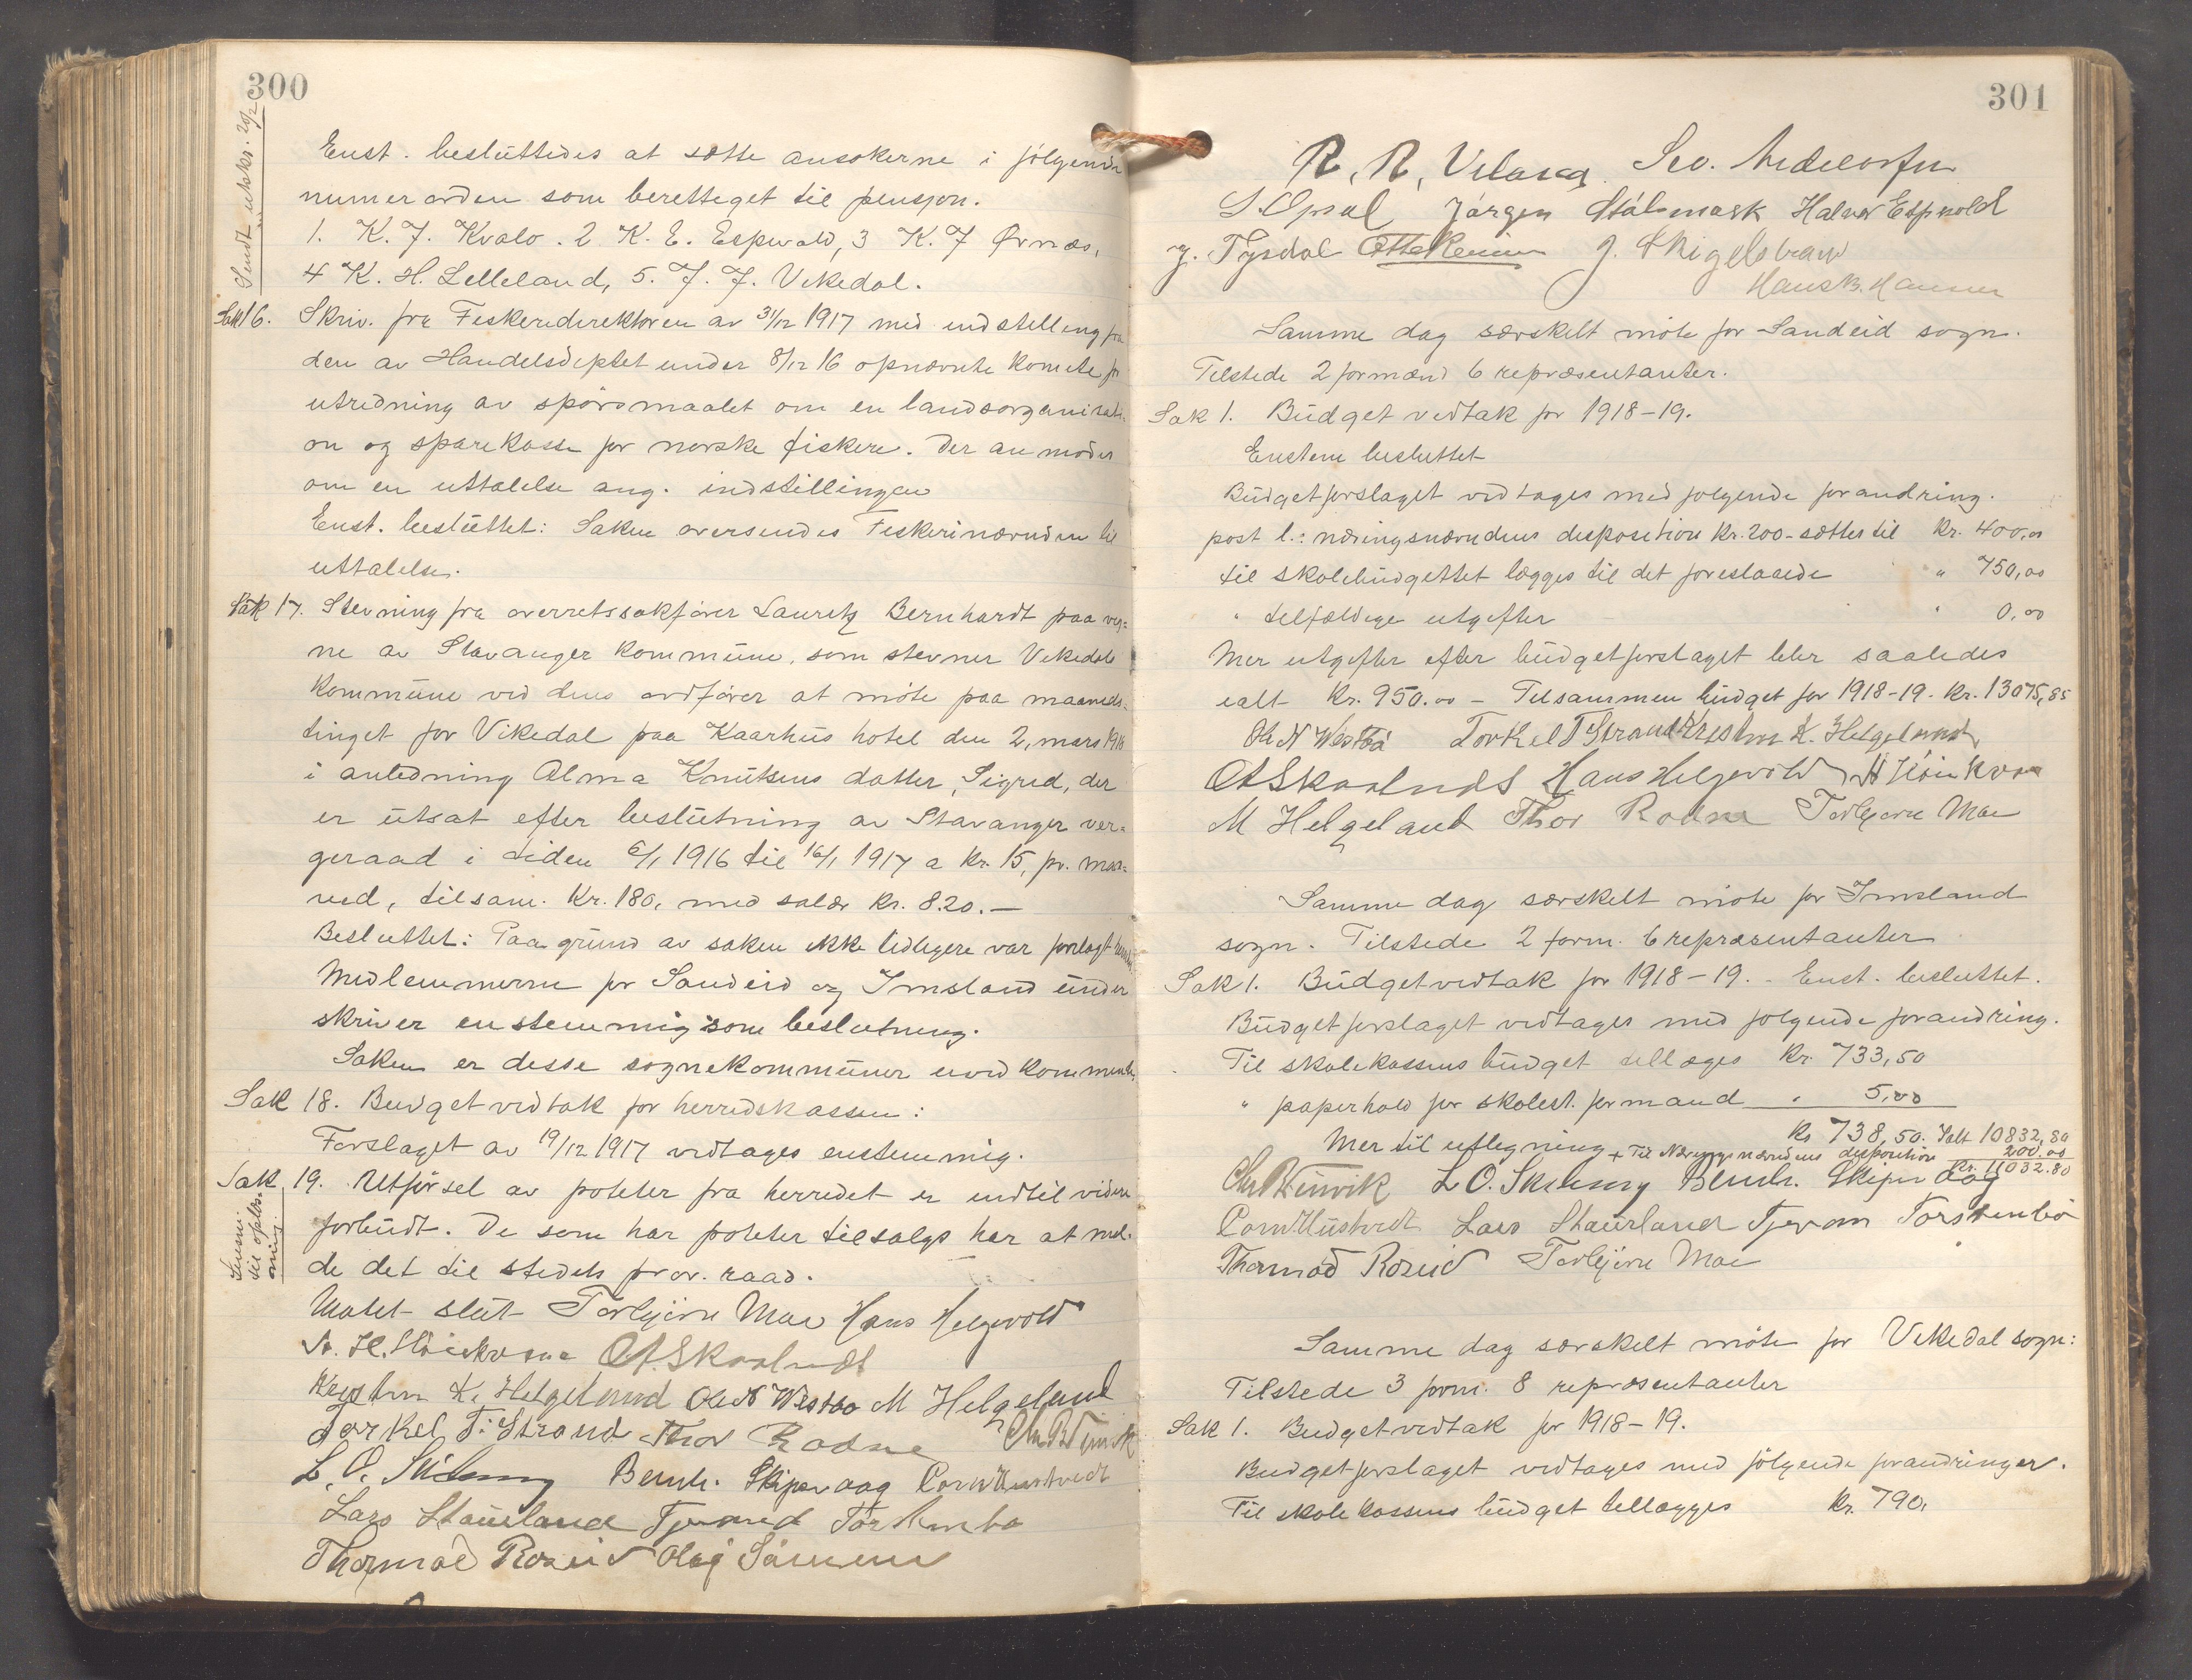 300
Sendt utskr. 20/2
Enst. besluttedes at sætte ansøkerne i følgende
numerorden som beretteget til pensjon.
1. K. J. Kvalo. 2 K. E. Espevold, 3 K. J Ørnæs,
4 K. H. Lelleland, 5. J. J. Vikedal.
Sak 16. Skriv. fra Fiskeridirektøren av 31/12 1917 med indstilling fra
den av Handelsdeptet under 8/12 16 opnævnte komite for
utredning av spørsmaalet om en landsorganisati-
on og sparekasse for norske fiskere. Der anmodes
om en uttalelse ang. indstillingen
Enst. besluttet: Saken oversendes Fiskerinævnden til
uttalelse.
Sak 17. Stevning fra overretssakfører Lauritz Bernhardt paa veg-
ne av Stavanger kommune, som stevner Vikedal
kommune ved dens ordfører at møte paa maaneds-
tinget for Vikedal paa Kaarhus hotel den 2, mars 1918
i anledning Alma Knutsens datter, Sigred, der
er utsat efter beslutning av Stavanger ver-
geraad i tiden 6/1 1916 til 16/1 1917 a kr. 15, pr. maa-
ned, tilsam. Kr. 180, med salær kr. 8.20.—
Besluttet: Paa grund av saken ikke tidligere var forelagt
Medlemmerne for Sandeid og Imsland under
skriver enstemmig som beslutning.
Saken er desse sognekommuner uvedkommende.
Sak 18. Budgetvedtak for herredskassen:
Forslaget av 19/12 1917 vedtages enstemmig.
Sak 19. Utførsel av poteter fra herredet er indtil videre
forbudt. De som har poteter tilsalgs har at mel-
de det til stedets prov. raad.
Møtet slut Torbjørn Mæe Hans Helgevold
A. H. Høiekvam O A Skaalnes
Kristen K. Helgeland Ole N Westbø M Helgeland
Torkel T. Strand Thor Rødne Chr. B Vinvik
L. O. Skeiseng Bernh. Skipevaag Corn Mustvedt
Lars Staurland Tjerand Torstenbø
Thormod Roseid Olaf Sørensen
301
R. R. Velaca. Sev. Andersen
S. Opsal Jørgen Stølsmark Halvor Espevold
J. Tysdal Otto J. Skigelstrand
Hans B. Hansen
Samme dag særskilt møte for Sandeid sogn.
Tilstede 2 formænd 6 repræsentanter.
Sak 1. Budget vedtak for 1918-19.
Enstem besluttet
Budgetforslaget vedtages med følgende forandring.
post l.: næringsnævndens disposition kr. 200 - sættes til Kr. 400,00
til skolebudgettet lægges til det foreslaaede " 750,00
" tilfældige utgifter " 0,00
Mer utgifter efter budgetforslaget blir saaledes
ialt Kr. 950.00 - Tilsammen budget for 1918-19. Kr. 13075,85
Ole N Westbø Torkel T Strand Kristen K. Helgeland
O A Skaalnes Hans Helgevold A Høiekvam
M Helgeland Thor Rødne Torbjørn Mæe
Samme dag særskilt møte for Imsland
sogn. Tilstede 2 form. 6 repræsentanter
Sak 1. Budgetvedtak for 1918-19. - Enst. besluttet.
Budgetforslaget vedtages med følgende forandring.
Til skolekassens budget tillæges Kr. 733,50
" papirhold for skolest. formand " 5,00
Kr 738,50. Ialt 10832,80
Mer til utlegning + Til Næringsnævndens disposition 200.00
Kr. 11032.80
Chr B Vinvik L O. Skeiseng Bernh. Skipevaag
Corn Mustvedt Lars Staurland Tjerand Torstenbø
Thormod Roseid Torbjørn Mæe
Samme dag særskilt møte for Vikedal sogn:
Tilstede 3 form. 8 repræsentanter
Sak 1. Budgetvedtak for 1918-19.
Budgetforslaget vedtages med følgende forandringer.
Til skolekassens budget tillægges Kr. 790,